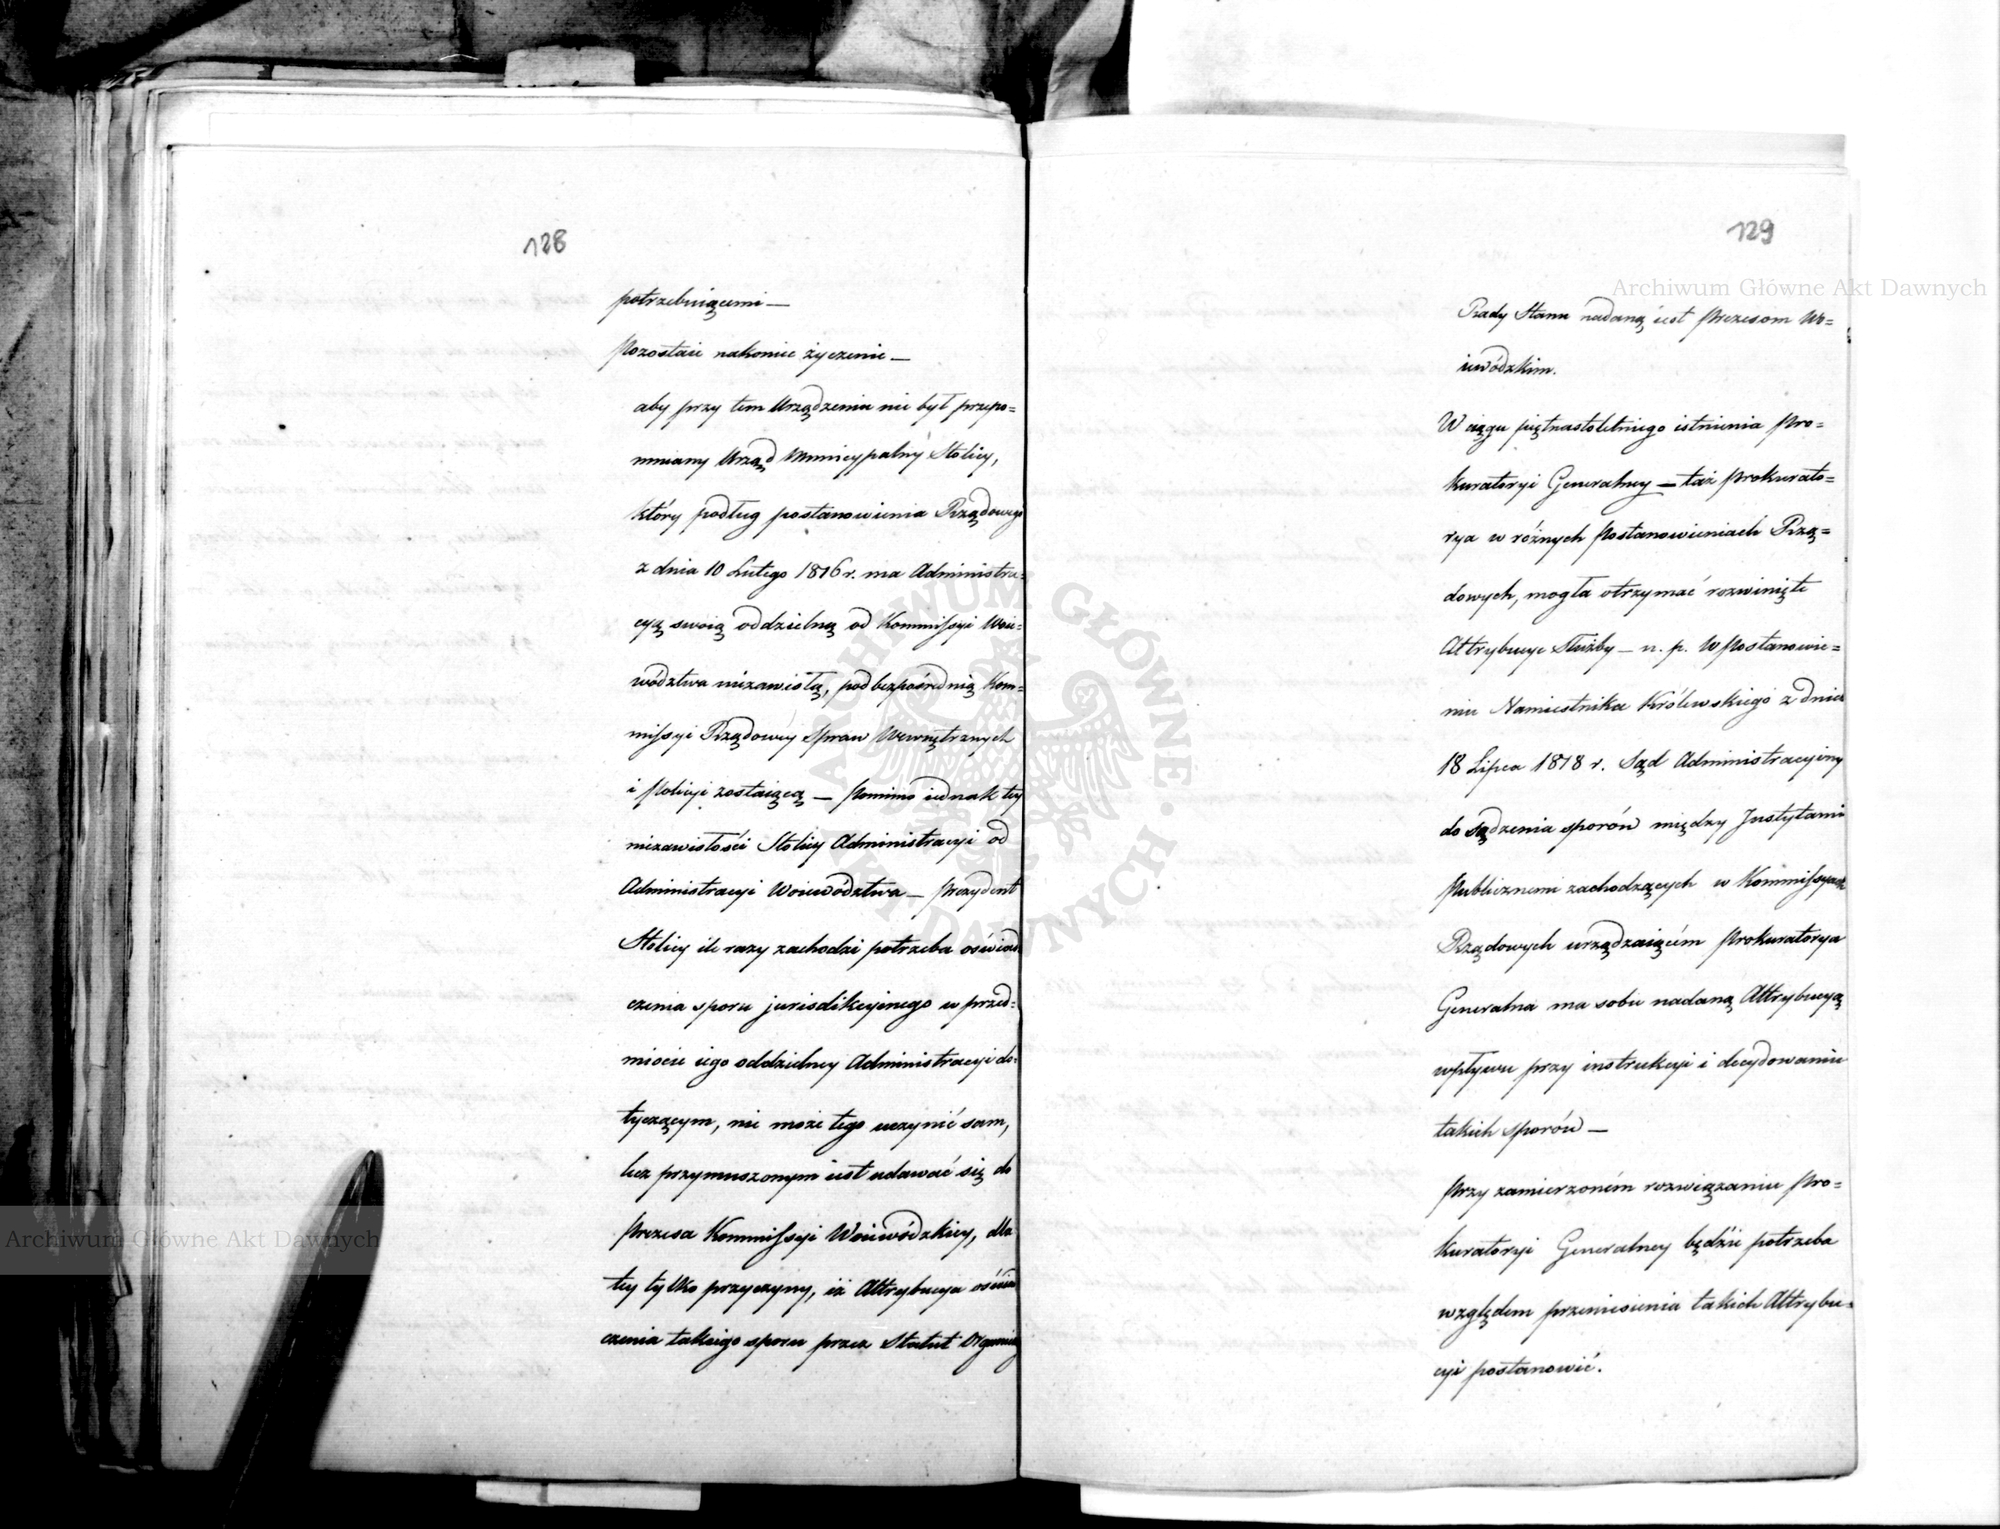 128
potrzebuiącemi —
Pozostaie nakoniec życzenie —
aby przy tem Urządzeniu nie był przepo=
mniany Urząd Municypalny Stolicy,
który podług postanowienia Rządowego
z dnia 10 Lutego 1816 r. ma Administra=
cyą swoią oddzielną od Kommissyi Woie=
wództwa niezawisłą, pod bezpośrednią Kom=
missyi Rządowey Spraw Wewnętrznych
i Policyi zostaiącą — Pomimo iednak tey
niezawisłości Stolicy Administracyi od
Administracyi Woiewództwa — Prezydent
Stolicy ile razy zachodzi potrzeba oświad
czenia sporu jurisdikcyinego w przed=
miocie iego oddzielney Administracyi do=
tyczącym, nie może tego uczynić sam,
lecz przymuszonym iest udawać się do
Prezesa Kommissyi Woiewódzkiey, dla
tey tylko przyczyny, iż Attrybucya oświad
czenia takiego sporu przez Statut Organicz
129
Rady Stanu nadaną iest Prezesom Wo=
iewódzkim.
W ciągu piętnastoletniego istnienia Pro=
kuratoryi Generalney — taż Prokurato=
rya w różnych Postanowieniach Rzą=
dowych, mogła otrzymać rozwinięte
Attrybucye Służby — n. p. W Postanowie=
niu Namiestnika Królewskiego z dnia
18 Lipca 1818 r. Sąd Administracyiny
do sądzenia sporów między Instytami
Publicznemi zachodzących w Kommissyach
Rządowych urządzaiącém Prokuratorya
Generalna ma sobie nadaną Attrybucyą
wpływu przy instrukcyi i decydowaniu
takich sporów —
Przy zamierzoném rozwiązaniu Pro=
kuratoryi Generalney będzie potrzeba
względem przeniesienia takich Attrybu=
cyi postanowić.
Archiwum Główne Akt Dawnych
Archiwum Główne Akt Dawnych
ARCHIWUM GŁÓWNE AKT DAWNYCH